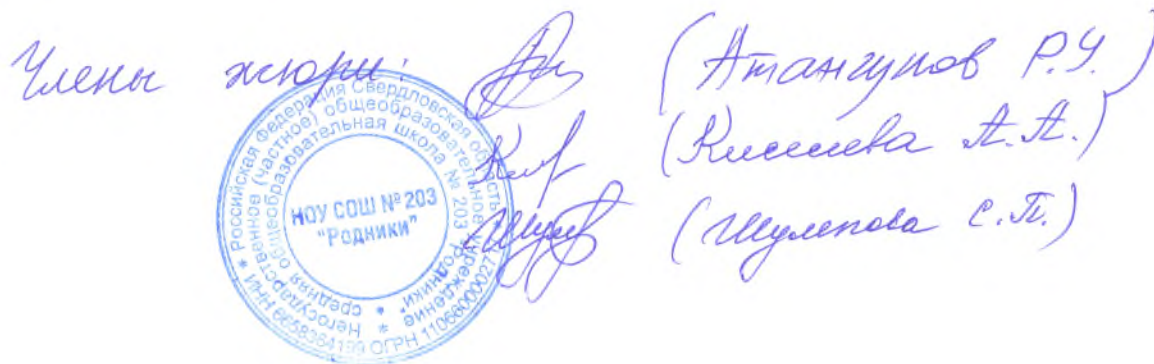 Члены жюри: (Атангулов Р.У.)
(Киселева А.А.)
(Шулепова С.П.)
* Российская Федерация Свердловская область *
Негосударственное (частное) общеобразовательное учреждение
средняя общеобразовательная школа № 203 "Родники"
ИНН 6658364199 ОГРН
НОУ СОШ № 203
"Родники"